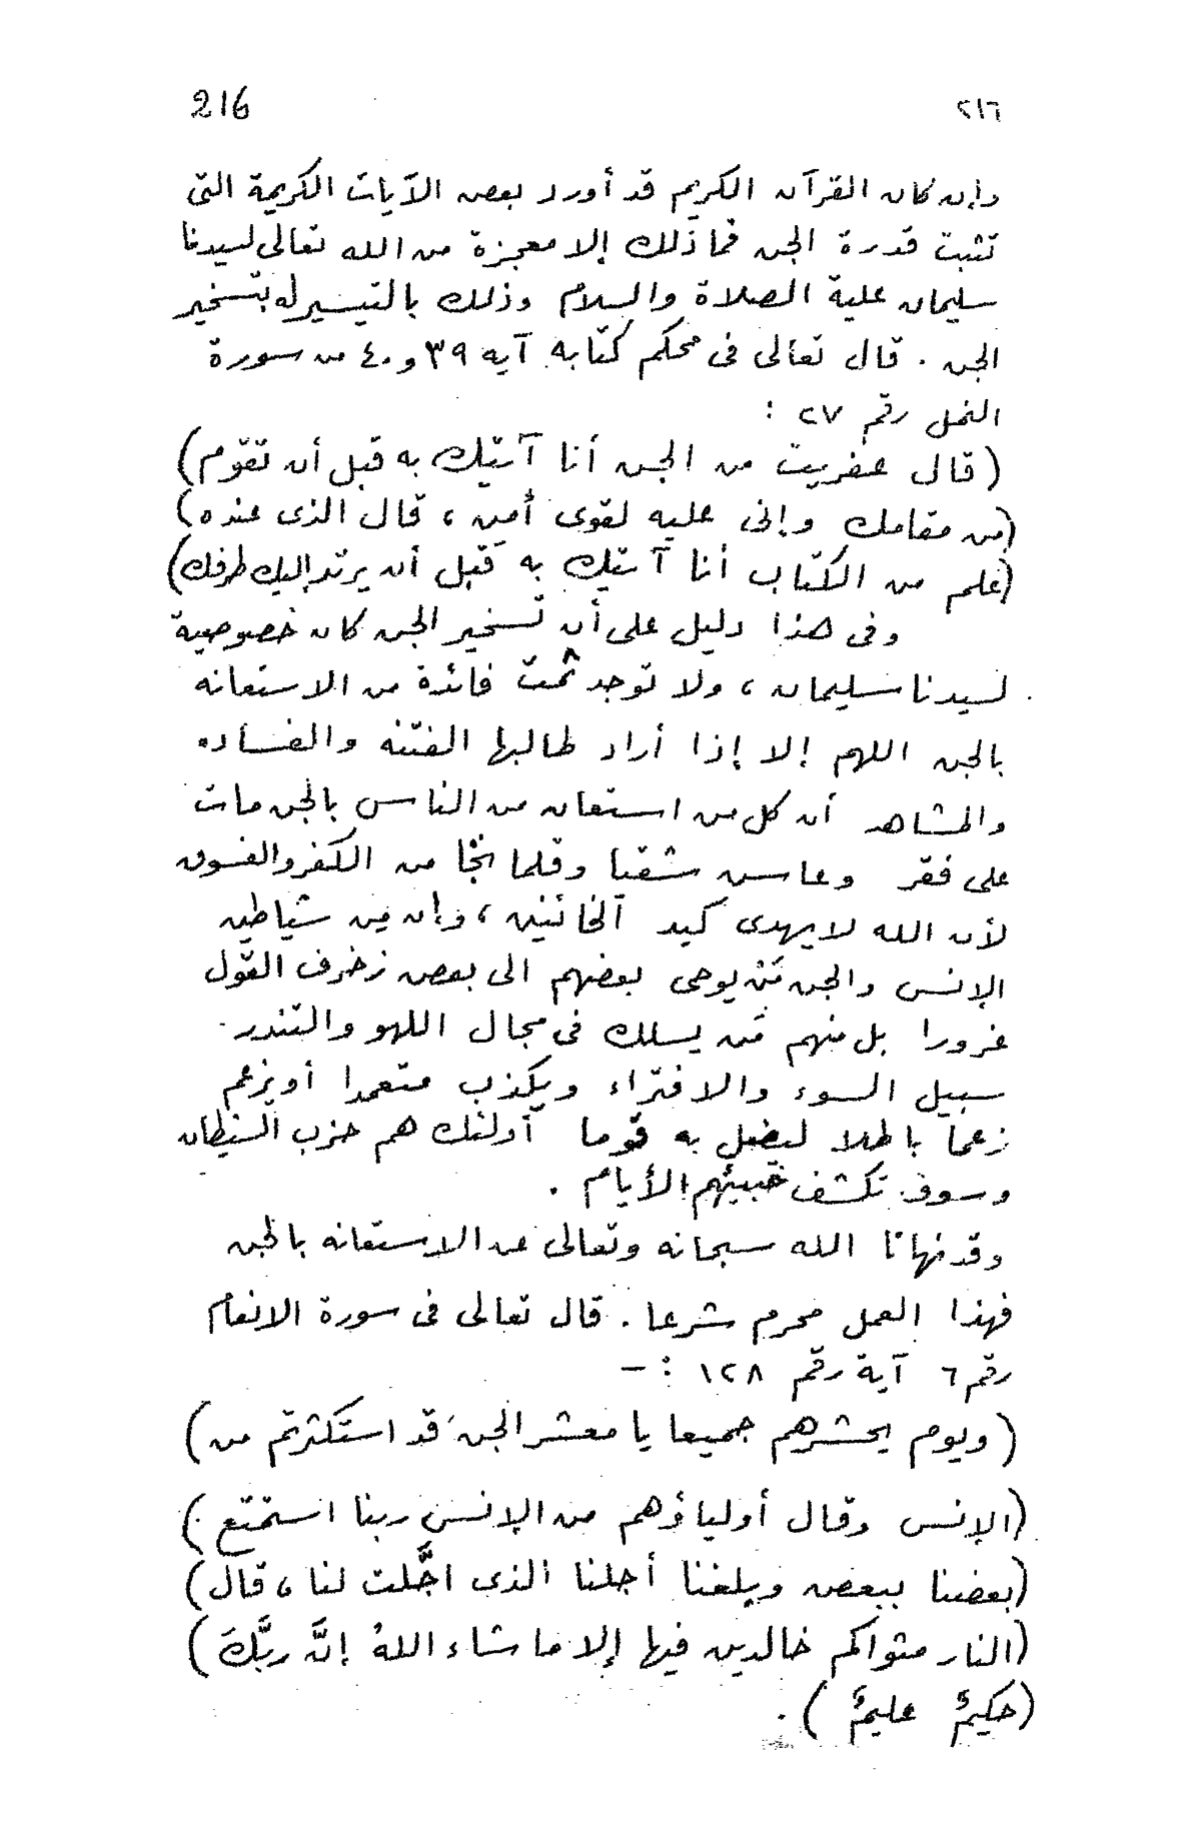 216 ٢١٦
وإن كان القرآن الكريم قد أورد بعض الآيات الكريمة التى
تثبت قدرة الجن فما ذلك إلا معجزة من الله تعالى لسيدنا
سليمان علية الصلاة والسلام وذلك بالتيسير له بتسخير
الجن . قال تعالى فى محكم كتابه آيه ٣٩ و ٤٠ من سورة
النمل رقم ٢٧ :
(قال عفريت من الجن أنا آتيك به قبل أن تقوم)
(من مقامك وإنى عليه لقوى أمين ، قال الذى عنده)
(علم من الكتاب أنا آتيك به قبل أن يرتد إليك طرفك)
وفى هذا دليل على أن تسخير الجن كان خصوصية
لسيدنا سليمان ، ولا توجد ثمت فائدة من الاستعانه
بالجن اللهم إلا إذا أراد طالبها الفتنه والفساد.
والمشاهد أن كل من استعان من الناس بالجن مات
على فقر وعاش شقيا وقلما نجا من الكفر والفسوق
لأن الله لا يهدى كيد الخائنين ، وإن من شياطين
الإنس والجن مَنْ يوحى بعضهم الى بعض زخرف القول
غرورا بل منهم مَن يسلك فى مجال اللهو والتندر
سبيل السوء والافتراء ويكذب متعمدا أو يزعم
زعما باطلا ليضل به قوما أولئك هم حزب الشيطان
وسوف تكشف خبيئهم الأيام .
وقد نهانا الله سبحانه وتعالى عن الاستعانه بالجن
فهذا العمل محرم شرعا . قال تعالى فى سورة الانعام
رقم ٦ آية رقم ١٢٨ : –
(ويوم يحشرهم جميعا يا معشر الجن قد استكثرتم من)
(الإنس وقال أولياؤهم من الإنس ربنا استمتع)
(بعضنا ببعض وبلغنا أجلنا الذى اجَّلت لنا ، قال)
(النار مثواكم خالدين فيها إلا ما شاء اللهُ إنَّ ربَّكَ)
(حكيمٌ عليمٌ) .